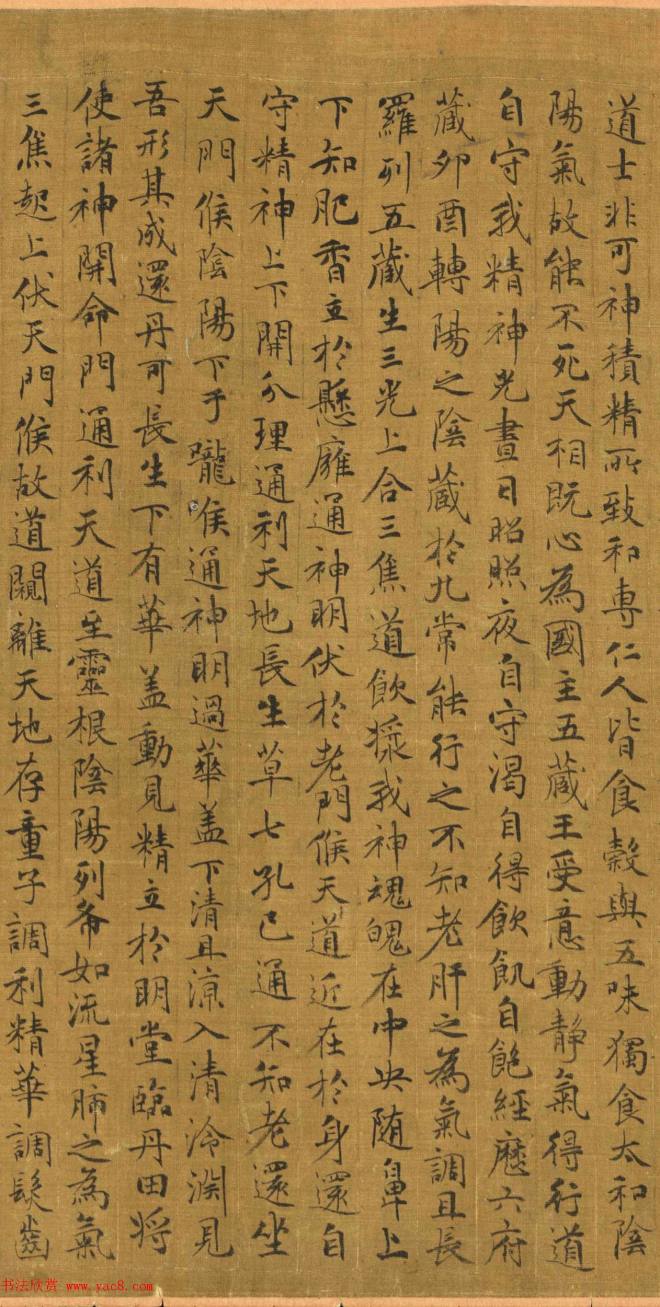 道士非可神積精所致和專仁人皆食穀與五味獨食太和陰
陽氣故能不死天相既心為國主五蔵王受意動静氣得行道
自守我精神光晝日昭照夜自守渴自得飲飢自飽經歷六府
蔵卯酉轉陽之陰蔵於九常能行之不知老肝之為氣調且長
羅列五蔵生三光上合三焦道飲漿我神魂魄在中央随鼻上
下知肥香立於懸癰通神明伏於老門候天道近在於身還自
守精神上下開分理通利天地長生草七孔已通不知老還坐
天門候陰陽下于嚨喉通神明過華盖下清且涼入清泠渊見
吾形其成還丹可長生下有華盖動見精立於明堂臨丹田将
使諸神開命門通利天道至靈根陰陽列布如流星肺之為氣
三焦起上伏天門候故道闚離天地存童子調利精華調髮齒
书法欣赏 www.yac8.com